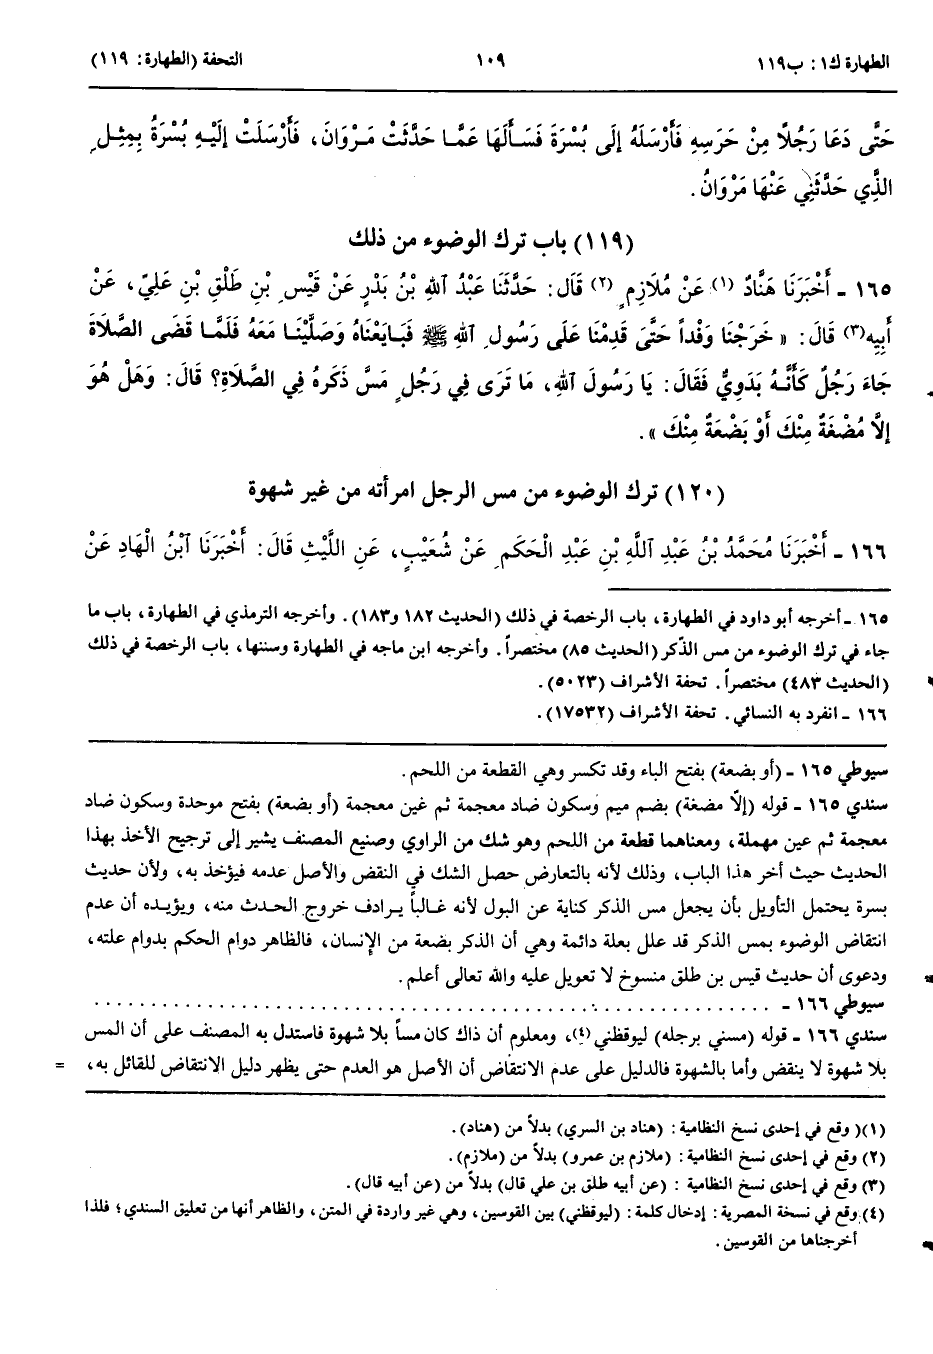 الطهارة ك١: ب١١٩ ١٠٩ التحفة (الطهارة: ١١٩)
حَتَّى دَعَا رَجُلاً مِنْ حَرَسِهِ فَأَرْسَلَهُ إِلَى بُسْرَةَ فَسَأَلَهَا عَمَّا حَدَّثَتْ مَرْوَانَ، فَأَرْسَلَتْ إِلَيْهِ بُسْرَةُ بِمِثْلِ
الَّذِي حَدَّثَنِي عَنْهَا مَرْوَانُ.
(١١٩) باب ترك الوضوء من ذلك
١٦٥ - أَخْبَرَنَا هَنَّادٌ (١) عَنْ مُلَازِمٍ (٢) قَالَ: حَدَّثَنَا عَبْدُ اللهِ بْنُ بَدْرٍ عَنْ قَيْسِ بْنِ طَلْقِ بْنِ عَلِيٍّ، عَنْ
أَبِيهِ(٣) قَالَ: « خَرَجْنَا وَفْداً حَتَّى قَدِمْنَا عَلَى رَسُولِ اللهِ ﷺ فَبَايَعْنَاهُ وَصَلَّيْنَا مَعَهُ فَلَمَّا قَضَى الصَّلَاةَ
جَاءَ رَجُلٌ كَأَنَّهُ بَدَوِيٌّ فَقَالَ: يَا رَسُولَ اللهِ، مَا تَرَى فِي رَجُلٍ مَسَّ ذَكَرهُ فِي الصَّلَاةِ؟ قَالَ: وَهَلْ هُوَ
إِلَّا مُضْغَةٌ مِنْكَ أَوْ بَضْعَةٌ مِنْكَ ».
(١٢٠) ترك الوضوء من مس الرجل امرأته من غير شهوة
١٦٦ - أَخْبَرَنَا مُحَمَّدُ بْنُ عَبْدِ اللَّهِ بْنِ عَبْدِ الْحَكَمِ عَنْ شُعَيْبٍ، عَنِ اللَّيْثِ قَالَ: أَخْبَرَنَا ابْنُ الْهَادِ عَنْ
١٦٥ - أخرجه أبو داود في الطهارة، باب الرخصة في ذلك (الحديث ١٨٢ و١٨٣). وأخرجه الترمذي في الطهارة، باب ما
جاء في ترك الوضوء من مس الذّكر (الحديث ٨٥) مختصراً. وأخرجه ابن ماجه في الطهارة وسننها، باب الرخصة في ذلك
(الحديث ٤٨٣) مختصراً. تحفة الأشراف (٥٠٢٣).
١٦٦ - انفرد به النسائي. تحفة الأشراف (١٧٥٣٢).
سيوطي ١٦٥ - (أو بضعة) بفتح الباء وقد تكسر وهي القطعة من اللحم.
سندي ١٦٥ - قوله (إلّا مضغة) بضم ميم وسكون ضاد معجمة ثم غين معجمة (أو بضعة) بفتح موحدة وسكون ضاد
معجمة ثم عين مهملة، ومعناهما قطعة من اللحم وهو شك من الراوي وصنيع المصنف يشير إلى ترجيح الأخذ بهذا
الحديث حيث أخر هذا الباب، وذلك لأنه بالتعارض حصل الشك في النقض والأصل عدمه فيؤخذ به، ولأن حديث
بسرة يحتمل التأويل بأن يجعل مس الذكر كناية عن البول لأنه غالباً يرادف خروج الحدث منه، ويؤيده أن عدم
انتقاض الوضوء بمس الذكر قد علل بعلة دائمة وهي أن الذكر بضعة من الإنسان، فالظاهر دوام الحكم بدوام علته،
ودعوى أن حديث قيس بن طلق منسوخ لا تعويل عليه والله تعالى أعلم.
سيوطي ١٦٦ - . . . . . . . . . . . . . . . . . . . . . . . . . . . . . . . . . . . . . . . .
سندي ١٦٦ - قوله (مسني برجله) ليوقظني(٤)، ومعلوم أن ذاك كان مساً بلا شهوة فاستدل به المصنف على أن المس
بلا شهوة لا ينقض وأما بالشهوة فالدليل على عدم الانتقاض أن الأصل هو العدم حتى يظهر دليل الانتقاض للقائل به، =
(١)( وقع في إحدى نسخ النظامية: (هناد بن السري) بدلاً من (هناد).
(٢) وقع في إحدى نسخ النظامية: (ملازم بن عمرو) بدلاً من (ملازم).
(٣) وقع في إحدى نسخ النظامية : (عن أبيه طلق بن علي قال) بدلاً من (عن أبيه قال).
(٤) وقع في نسخة المصرية: إدخال كلمة: (ليوقظني) بين القوسين، وهي غير واردة في المتن، والظاهر أنها من تعليق السندي؛ فلذا
أخرجناها من القوسين.